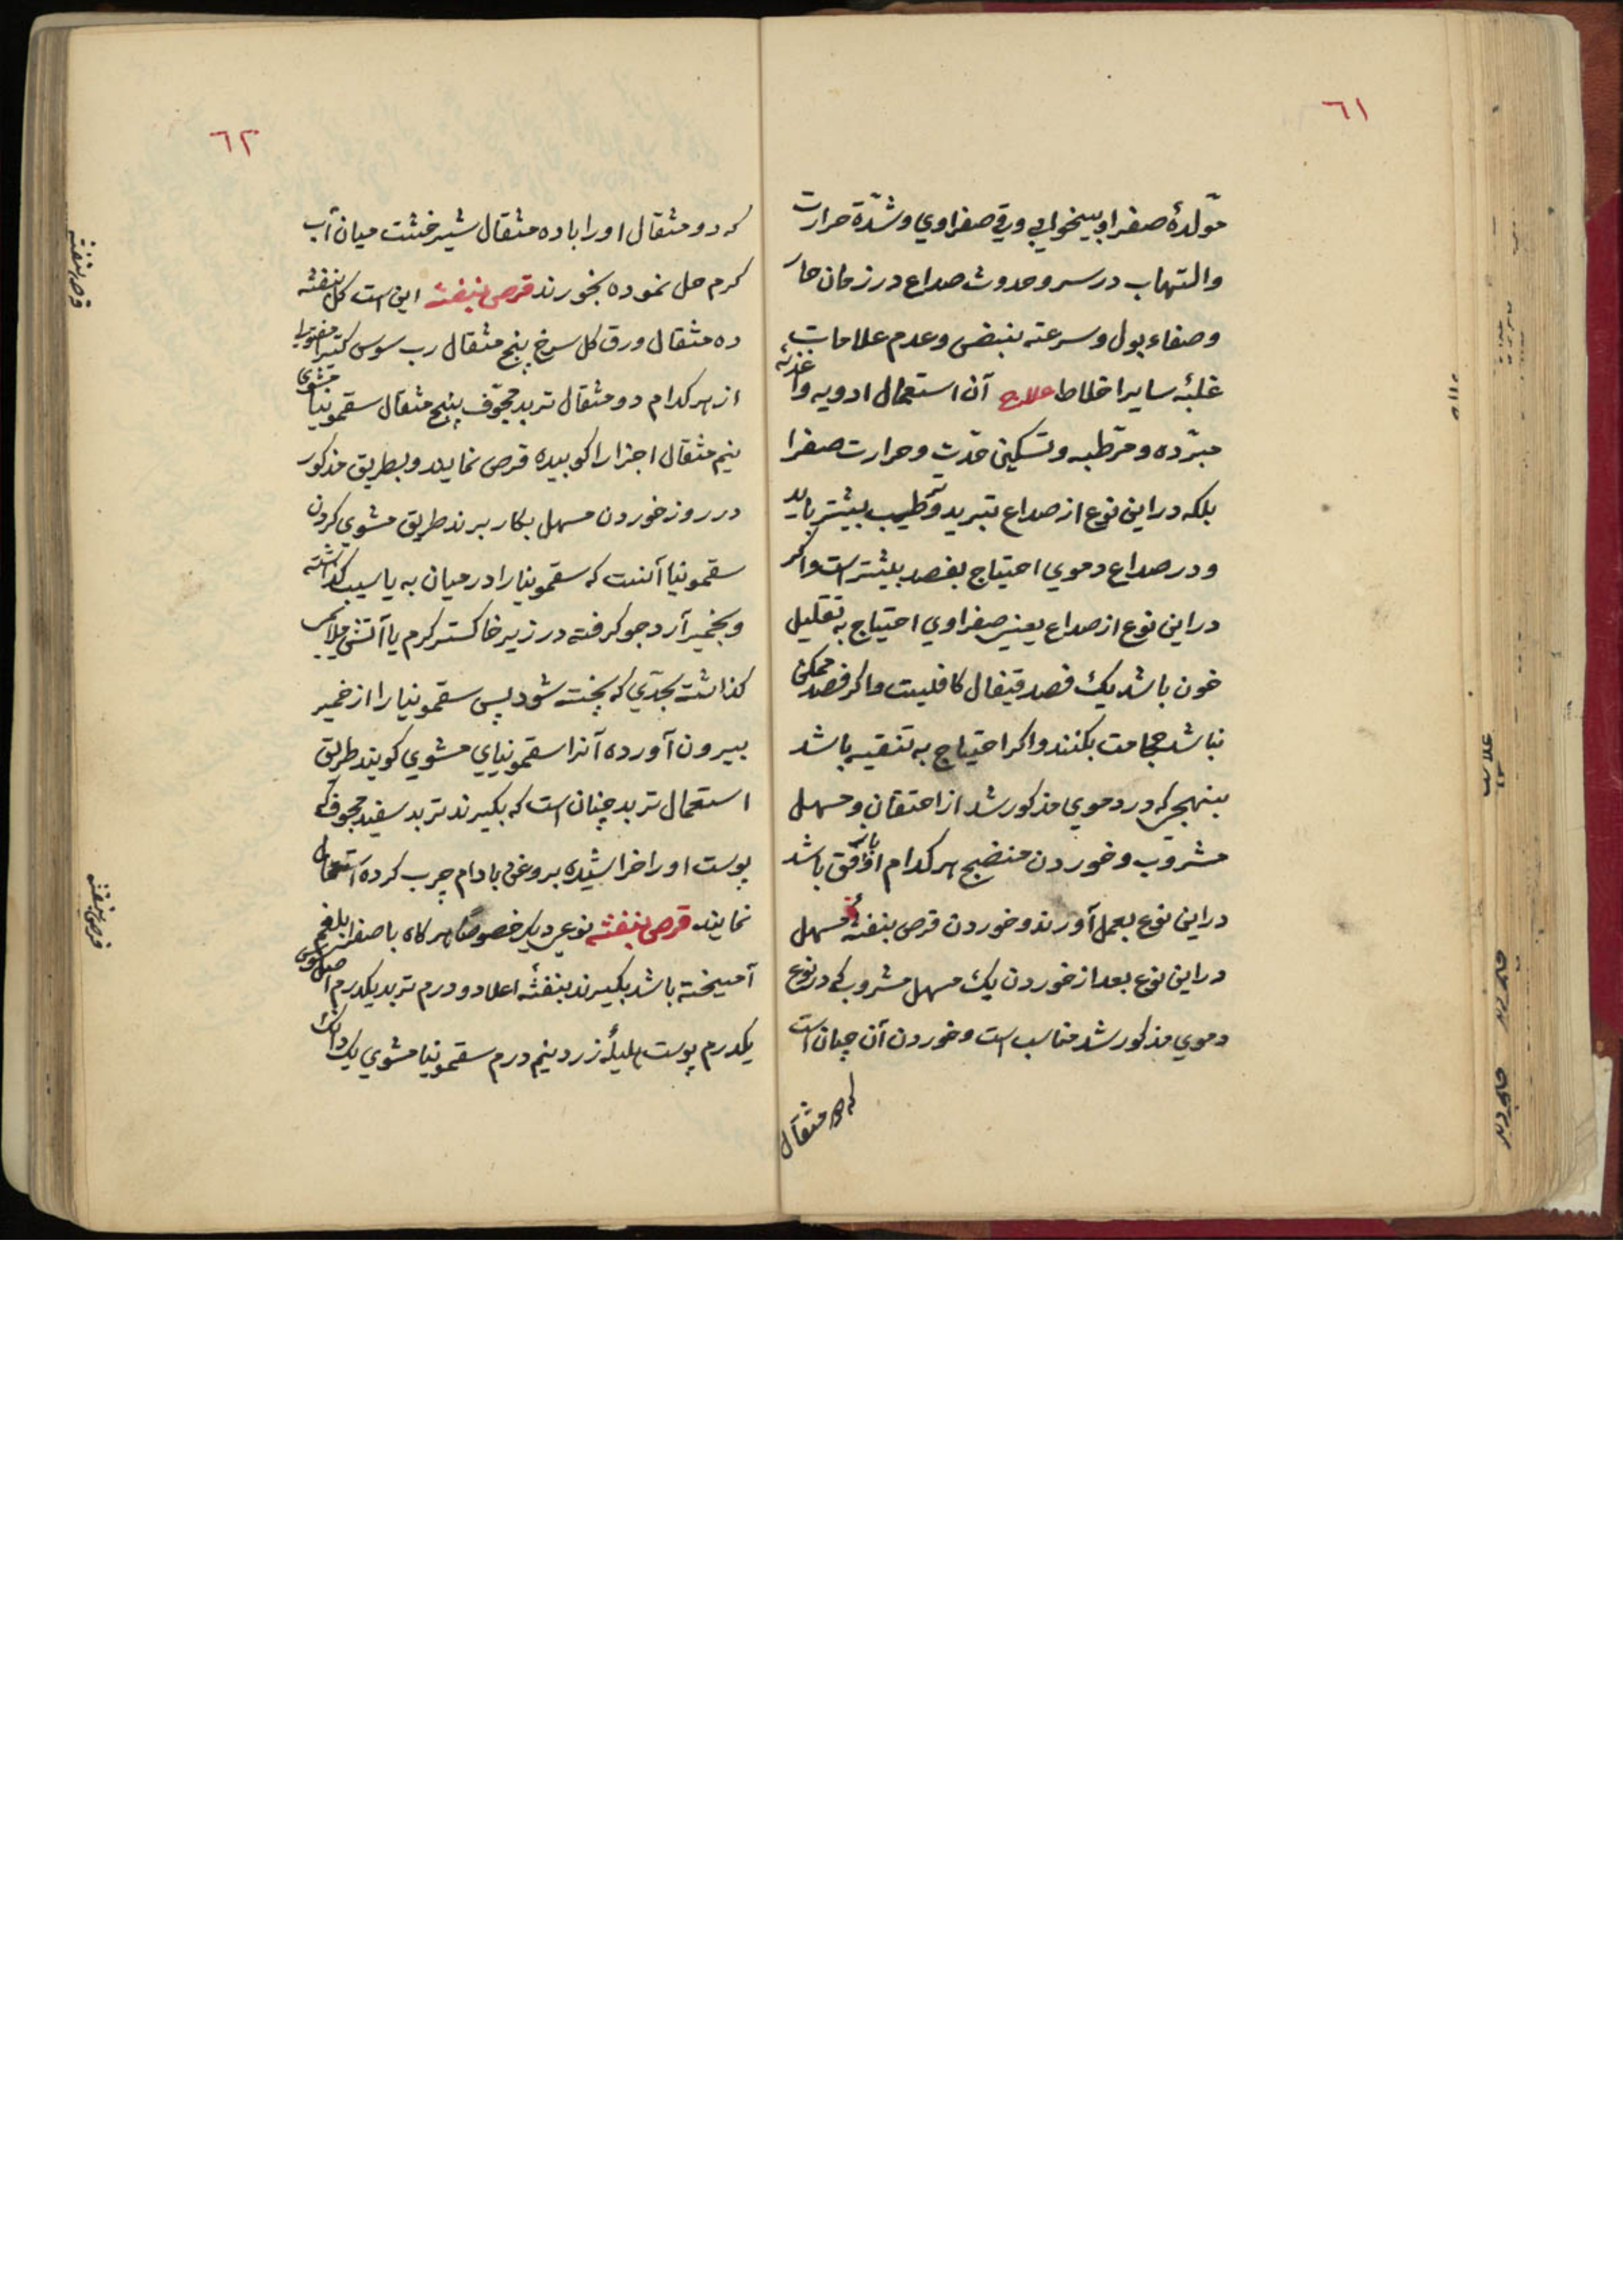 ٦١
مولدهٔ صفرا و بیخوابی و قی صفراوي و شدّة حرارت
والتهاب در سر و حدوث صداع در زمان حار
وصفاء بول و سرعته نبض و عدم علامات
غلبهٔ سایر اخلاط علاج آن استعمال ادویه واغذیهٔ
مبرّده و مرطّبه و تسکین حدّت و حرارت صفرا
بلکه در این نوع از صداع تبرید و ترطیب بیشتر باید
و در صداع دموي احتیاج بفصد بیشتر است واکر
در این نوع از صداع یعنی صفراوي احتیاج به تقلیل
خون باشد یك فصد قیفال کافیست واکر فصد ممکن
نباشد حجامت بکنند واکر احتیاج به تنقیه باشد
بنهجی که در دموي مذکور شد از احتقان و مسهل
مشروب و خوردن منضج هر کدام اوفق باشد
در این نوع بعمل آورند و خوردن قرص بنفشهٔ مسهل
در این نوع بعد از خوردن یك مسهل مشروب که در نوع
دموي مذکور شد مناسب است و خوردن آن چنان است
که دو مثقال
٦٢
که دو مثقال او را با ده مثقال شیر خشت میان آب
کرم حل نموده بخورند قرص بنفشه این است کل بنفشه
ده مثقال ورق کل سرخ پنج مثقال رب سوس کتیرا
از هر کدام دو مثقال تربد مجوّف پنج مثقال سقمونیا مشوي
نیم مثقال اجزا را کوبیده قرص نمایند و بطریق مذکور
در روز خوردن مسهل بکار برند طریق مشوي کردن
سقمونیا آنست که سقمونیا را در میان به یا سیب کذاشته
و بخمیر آرد جو کرفته در زیر خاکستر کرم یا آتش ملایمی
کذاشت بحدّي که پخته شود پس سقمونیا را از خمیر
بیرون آورده آنرا سقمونیاي مشوي کویند طریق
استعمال تربد چنان است که بکیرند تربد سفید مجوف که
پوست او را خراشیده بروغن بادام چرب کرده استعمال
نمایند قرص بنفشه نوعی دیکر خصوصًا هر کاه با صفرا بلغم
آمیخته باشد بکیرند بنفشهٔ اعلا دو درم تربد یکدرم اصل سوس
یکدرم پوست هلیلهٔ زرد نیم درم سقمونیا مشوي یك دانك
قرص بنفشه
قرص بنفشه